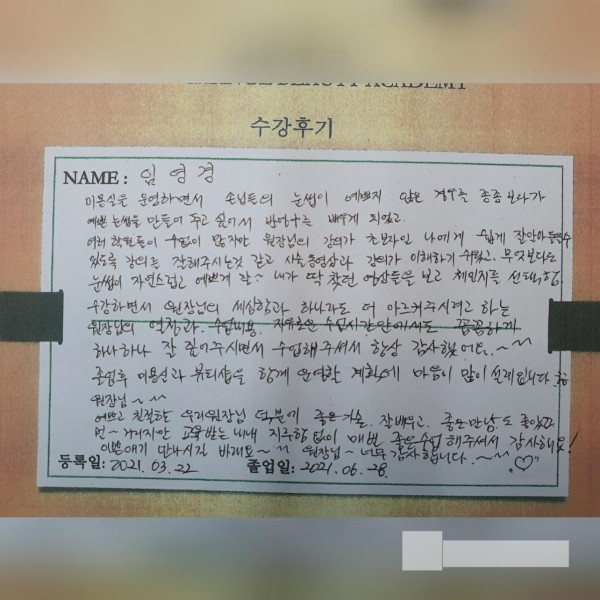 BEAUTY ACADEMY
수강후기
NAME : 임영경
미용실을 운영하면서 손님들의 눈썹이 예쁘지 않은 경우를 종종 보다가
예쁜 눈썹을 만들어 주고 싶어서 반영구를 배우게 되었고.
여러 학원들이 수없이 많지만 원장님의 강의가 초보자인 나에게 쉽게 잘알아들을수
있도록 강의를 잘해주시는것 같고 시술동영상과 강의가 이해하기 쉬웠고. 무엇보다도
눈썹이 자연스럽고 예쁘게 내가 딱 찾던 영상들을 보고 체인지를 선택함.
수강하면서 원장님의 세심함과 하나라도 더 가르켜주시려고 하는
원장님의 열정과. 수업내용. 자유로운 수업시간안에서도 꼼꼼하게
하나하나 잘 짚어주시면서 수업해주셔서 항상 감사했어요.~~
졸업후 미용실과 뷰티샵을 함께 운영할 계획에 마음이 많이 설레입니다.
원장님~~
예쁘고 친절한 우리원장님 덕분에 좋은기술. 잘배우고. 좋은만남도 좋았고
먼~ 거리지만 교육받는 내내 지루함 없이 매번 좋은수업 해주셔서 감사해요!
이쁜애기 만나시길 바래요~^^ 원장님~ 너무 감사합니다.~~♡
등록일: 2021. 03. 22 졸업일: 2021. 06. 28.